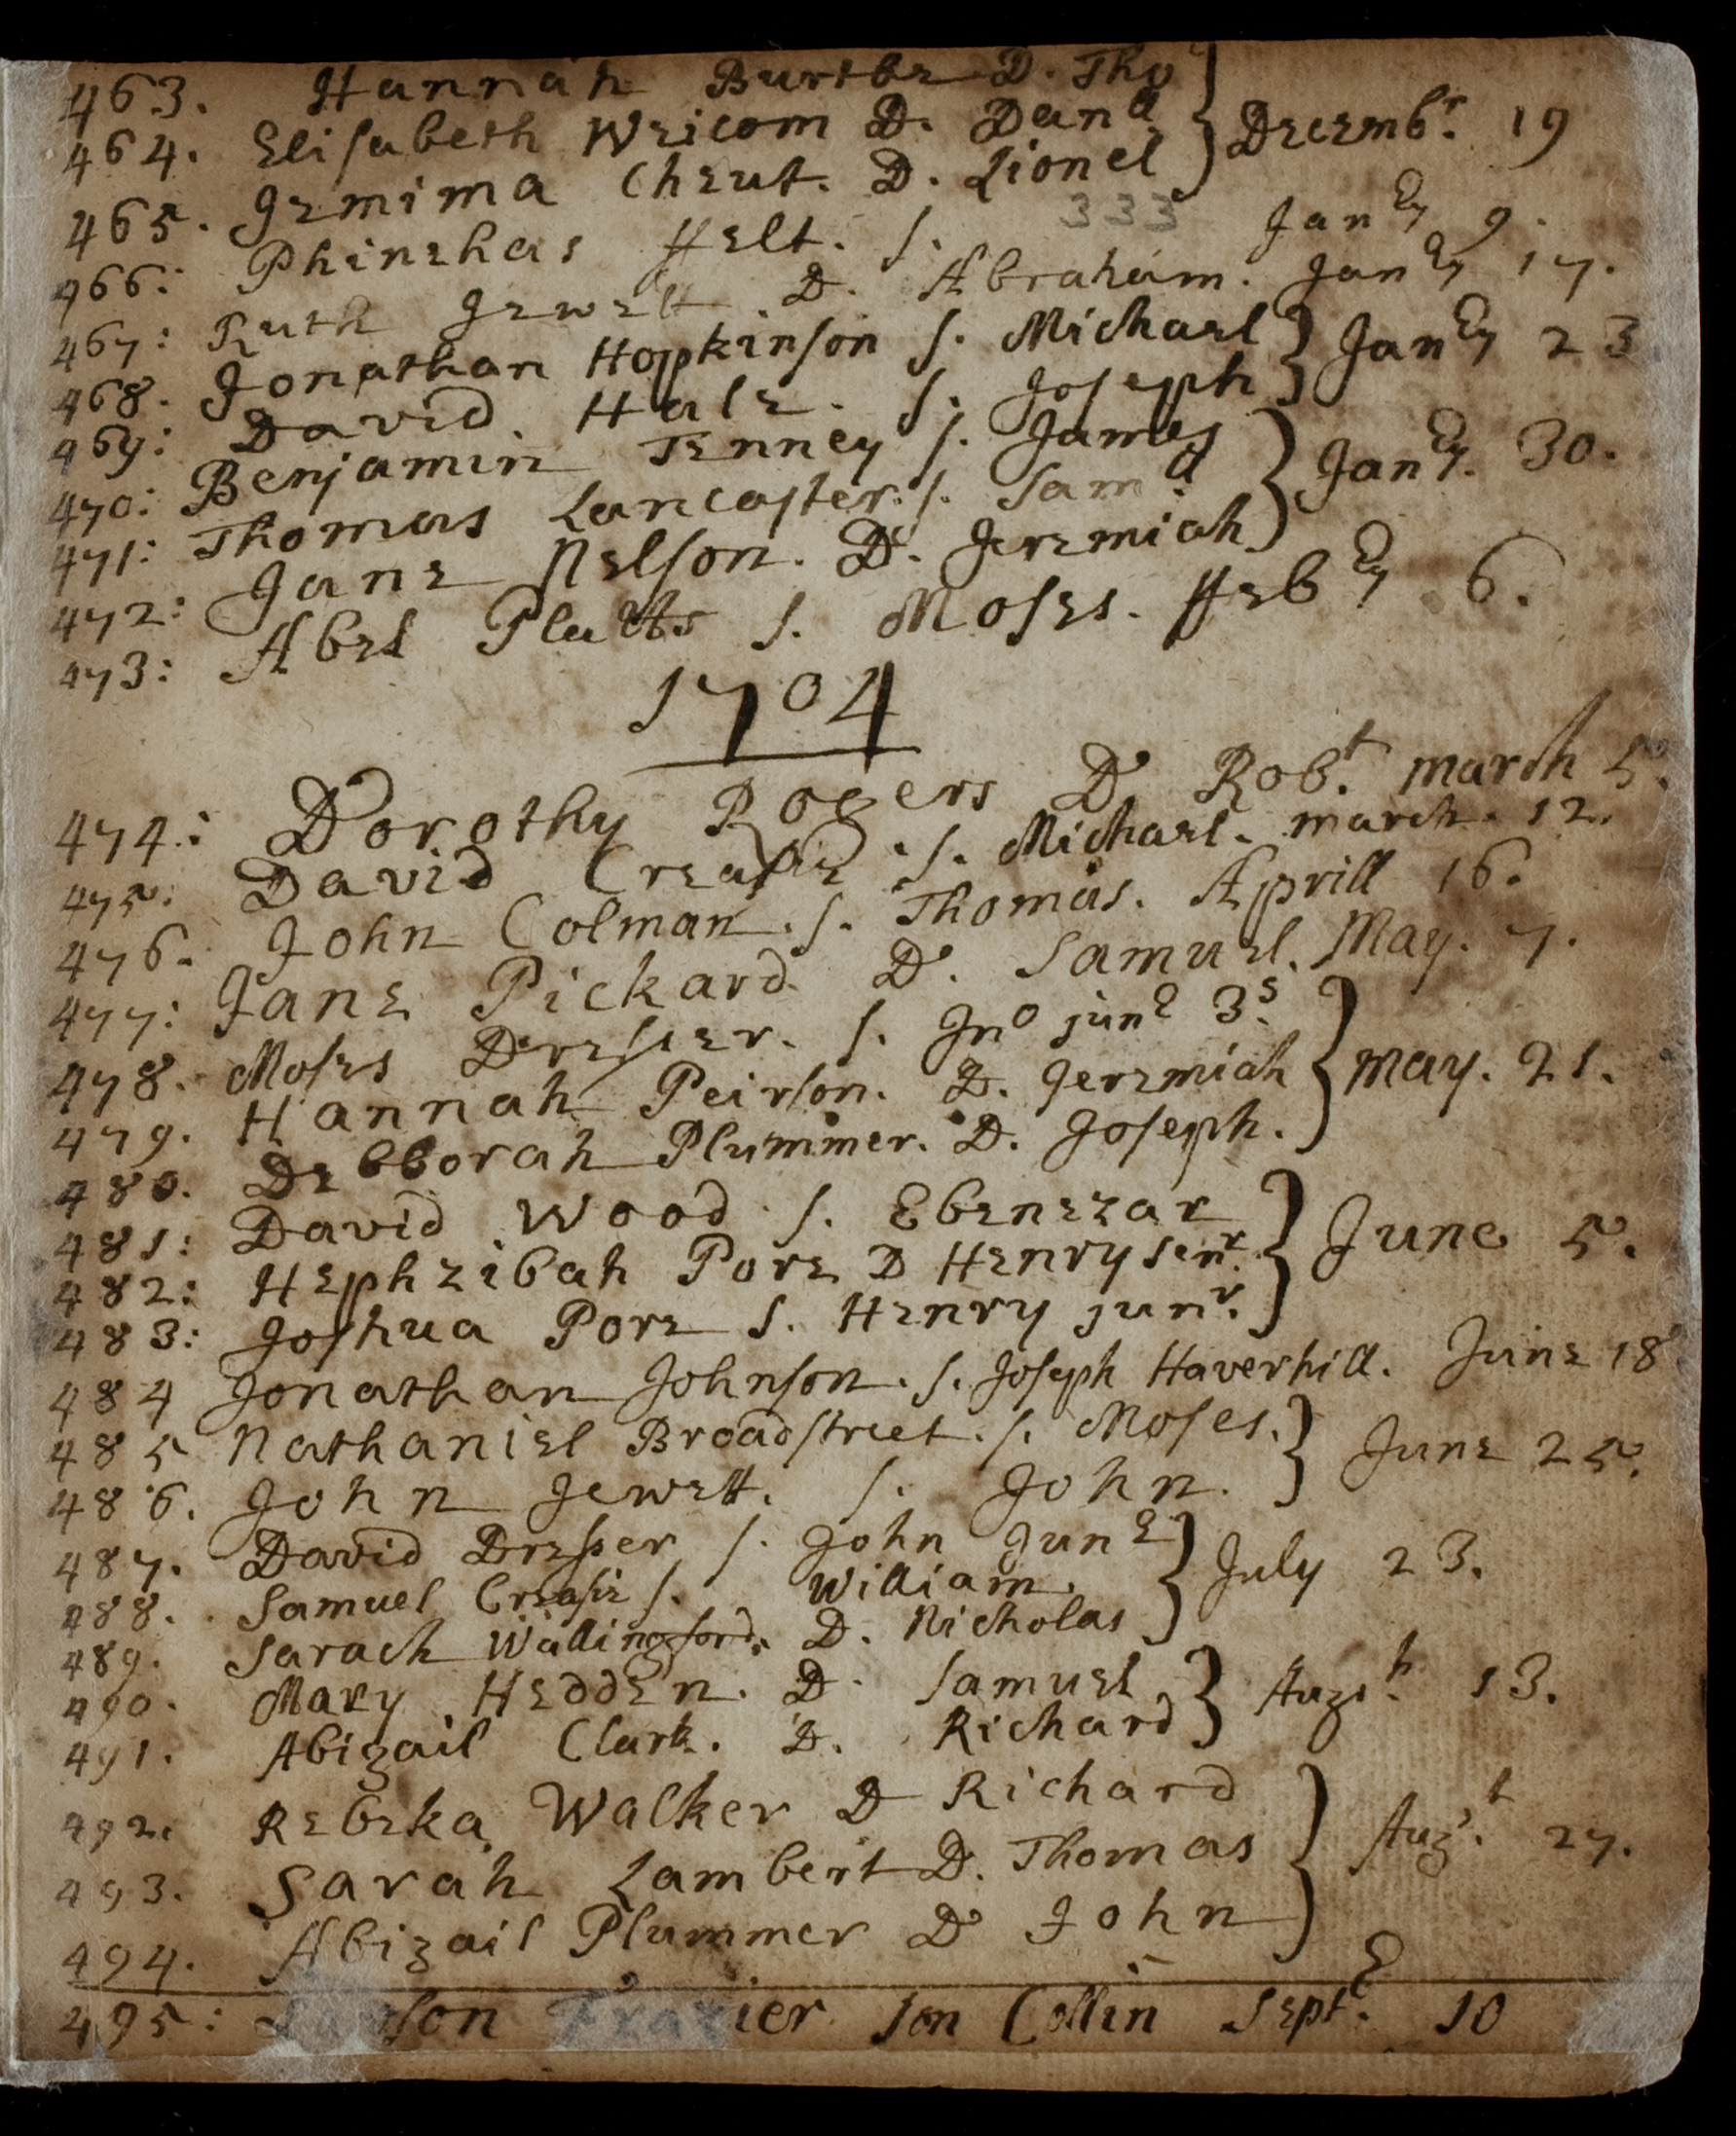 463. Hannah Burtbe D. Tho
464. Elisabeth Weicom D. Danll } Decembr. 19
465. Jemima Cheut. D. Lionel
333
466: Phinehas Felt. s. Janey 9.
467: Ruth Jewett D. Abraham. Janey 17.
468. Jonathan Hopkinson s. Michael } Janey 23
469: David Hale. s. Joseph
470: Benjamin Tenney s. James
471: Thomas Lancaster. s. Samll } Janey. 30.
472: Jane Nelson. D. Jeremiah
473: Abel Platts s. Moses. Febey 6.
1704
474: Dorothy Rogers D. Robt. march 5.
475: David Creasie. s. Michael. march. 12.
476. John Colman. s. Thomas. Aprill 16.
477: Jane Pickard. D. Samuel. May. 7.
478. Moses Dresser. s. Jno june 3s.
479. Hannah Peirson. D. Jeremiah } may. 21.
480. Debborah Plummer. D. Joseph.
481: David Wood. s. Ebenezar
482: Hephzibah Pore D Henry senr. } June 5.
483: Joshua Pore s. Henry junr.
484 Jonathan Johnson. s. Joseph Haverhill. June 18
485 Nathaniel Broadstreet. s. Moses. } June 25.
486. John Jewett. s. John.
487. David Dresser s. John June
488. Samuel Creasie s. William. } July 23.
489. Sarach Wallingford. D. Nicholas
490. Mary Hedden. D. Samuel. } Augst. 13.
491. Abigail Clark. D. Richard
492. Rebeka Walker D Richard
493. Sarah Lambert D. Thomas } Augt. 27.
494. Abigail Plummer D John
495: son ier son Collin Septe. 10